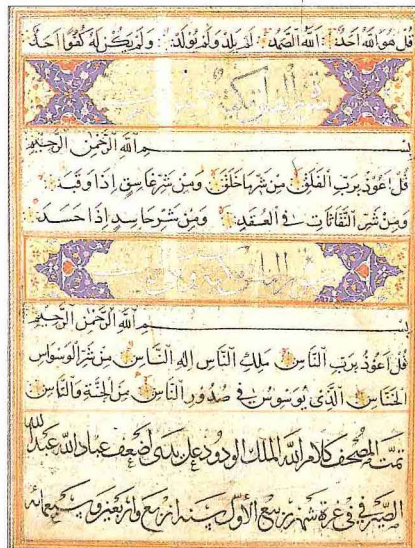 قُلْ هُوَ اللَّهُ أَحَدٌ اللَّهُ الصَّمَدُ لَمْ يَلِدْ وَلَمْ يُولَدْ وَلَمْ يَكُنْ لَهُ كُفُوًا أَحَدٌ
بِسْمِ اللَّهِ الرَّحْمٰنِ الرَّحِيمِ
قُلْ أَعُوذُ بِرَبِّ الْفَلَقِ مِنْ شَرِّ مَا خَلَقَ وَمِنْ شَرِّ غَاسِقٍ إِذَا وَقَبَ
وَمِنْ شَرِّ النَّفَّاثَاتِ فِي الْعُقَدِ وَمِنْ شَرِّ حَاسِدٍ إِذَا حَسَدَ
بِسْمِ اللَّهِ الرَّحْمٰنِ الرَّحِيمِ
قُلْ أَعُوذُ بِرَبِّ النَّاسِ مَلِكِ النَّاسِ إِلٰهِ النَّاسِ مِنْ شَرِّ الْوَسْوَاسِ
الْخَنَّاسِ الَّذِي يُوَسْوِسُ فِي صُدُورِ النَّاسِ مِنَ الْجِنَّةِ وَالنَّاسِ
تمت المصحف كلام الله الملك الودود على يدي أضعف عباد الله عبد الله
الصيرفي في غرة شهر ربيع الأول سنة أربع وأربعين وسبعمائة